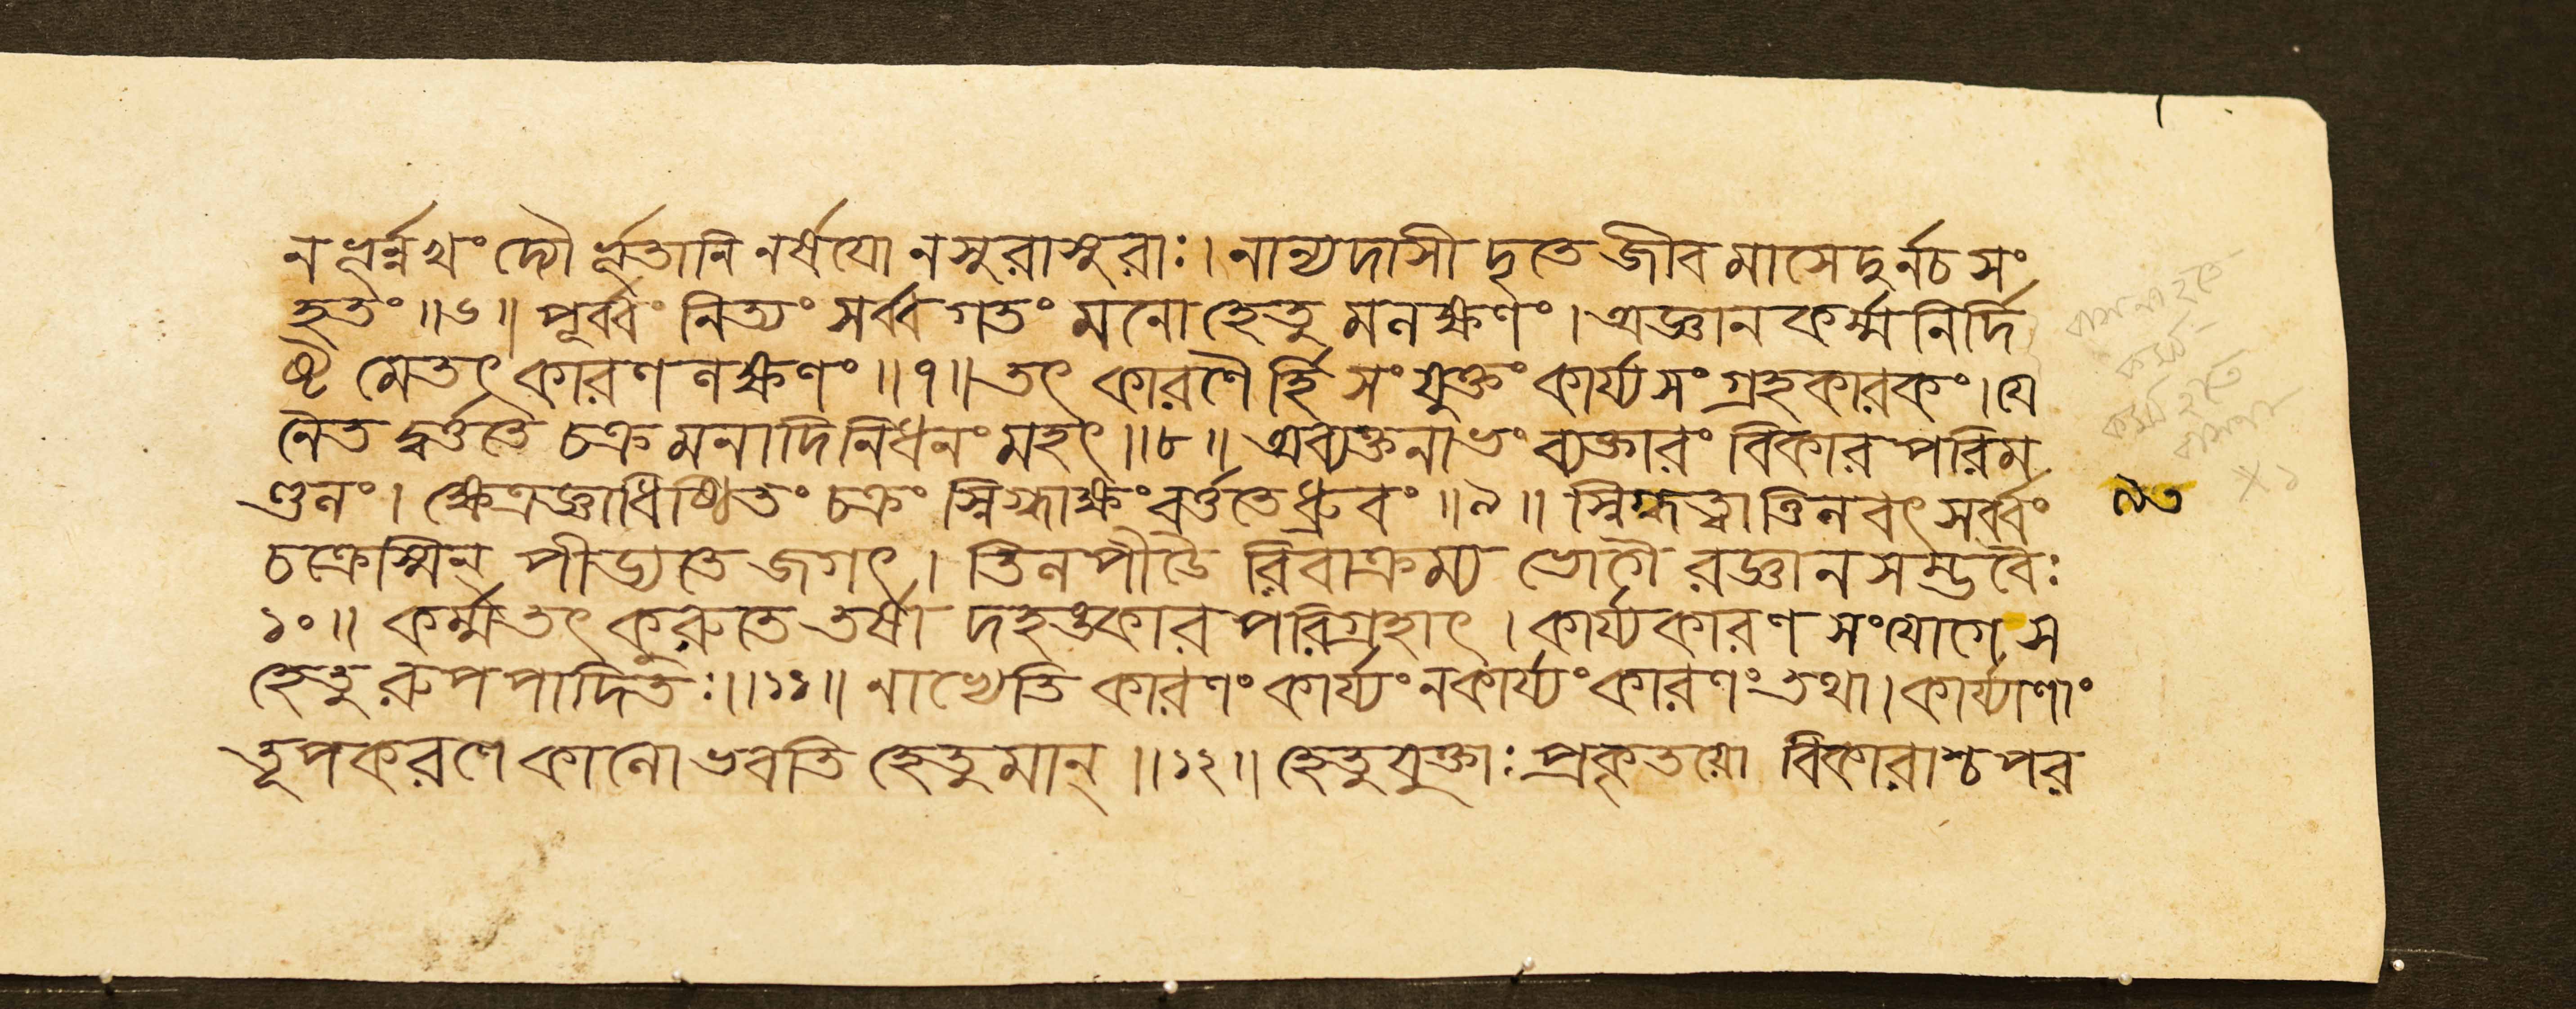 ন ভূর্ন্ন খং দ্যৌ র্ভূতানি নর্ষযো ন সুরাসুরাঃ। নান্যদাসী দৃতে জীব মাসেদুর্নচ সং
হতং॥৬॥ পূর্ব্বং নিত্যং সর্ব্বগতং মনোহেতু মলক্ষণং। অজ্ঞান কর্ম্ম নির্দি
ষ্ট মেতৎ কারণ লক্ষণং॥৭॥ তৎ কারণৈ র্হি সংযুক্তং কার্য্য সংগ্রহকারকং। যে
নৈত দ্বর্ত্ততে চক্র মনাদিনিধনং মহৎ॥৮॥ অব্যক্তনাভং ব্যক্তারং বিকার পরিম
ণ্ডলং। ক্ষেত্রজ্ঞাধিষ্ঠিতং চক্রং স্নিগ্ধাক্ষং বর্ত্ততে ধ্রুবং॥৯॥ স্নিগ্ধত্বাত্তিলবৎ সর্ব্বং
চক্রেস্মিন্ পীড্যতে জগৎ। তিলপীডৈ রিবাক্রম্য ভোগৈ রজ্ঞান সম্ভবৈঃ
১০॥ কর্ম্ম তৎ কুরুতে তর্ষা দহঙ্কার পরিগ্রহাৎ। কার্য্য কারণ সংযোগে স
হেতু রুপপাদিতঃ॥১১॥ নাভ্যেতি কারণং কার্য্যং ন কার্য্যং কারণং তথা। কার্য্যাণাং
তূপকরণে কালো ভবতি হেতুমান্॥১২॥ হেতুযুক্তাঃ প্রকৃতয়ো বিকারাশ্চ পর